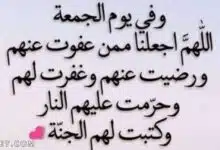 وفي يوم الجمعة
اللهمَّ اجعلنا ممن عفوت عنهم
ورضيت عنهم وغفرت لهم
وحرمت عليهم النار
وكتبت لهم الجنّة